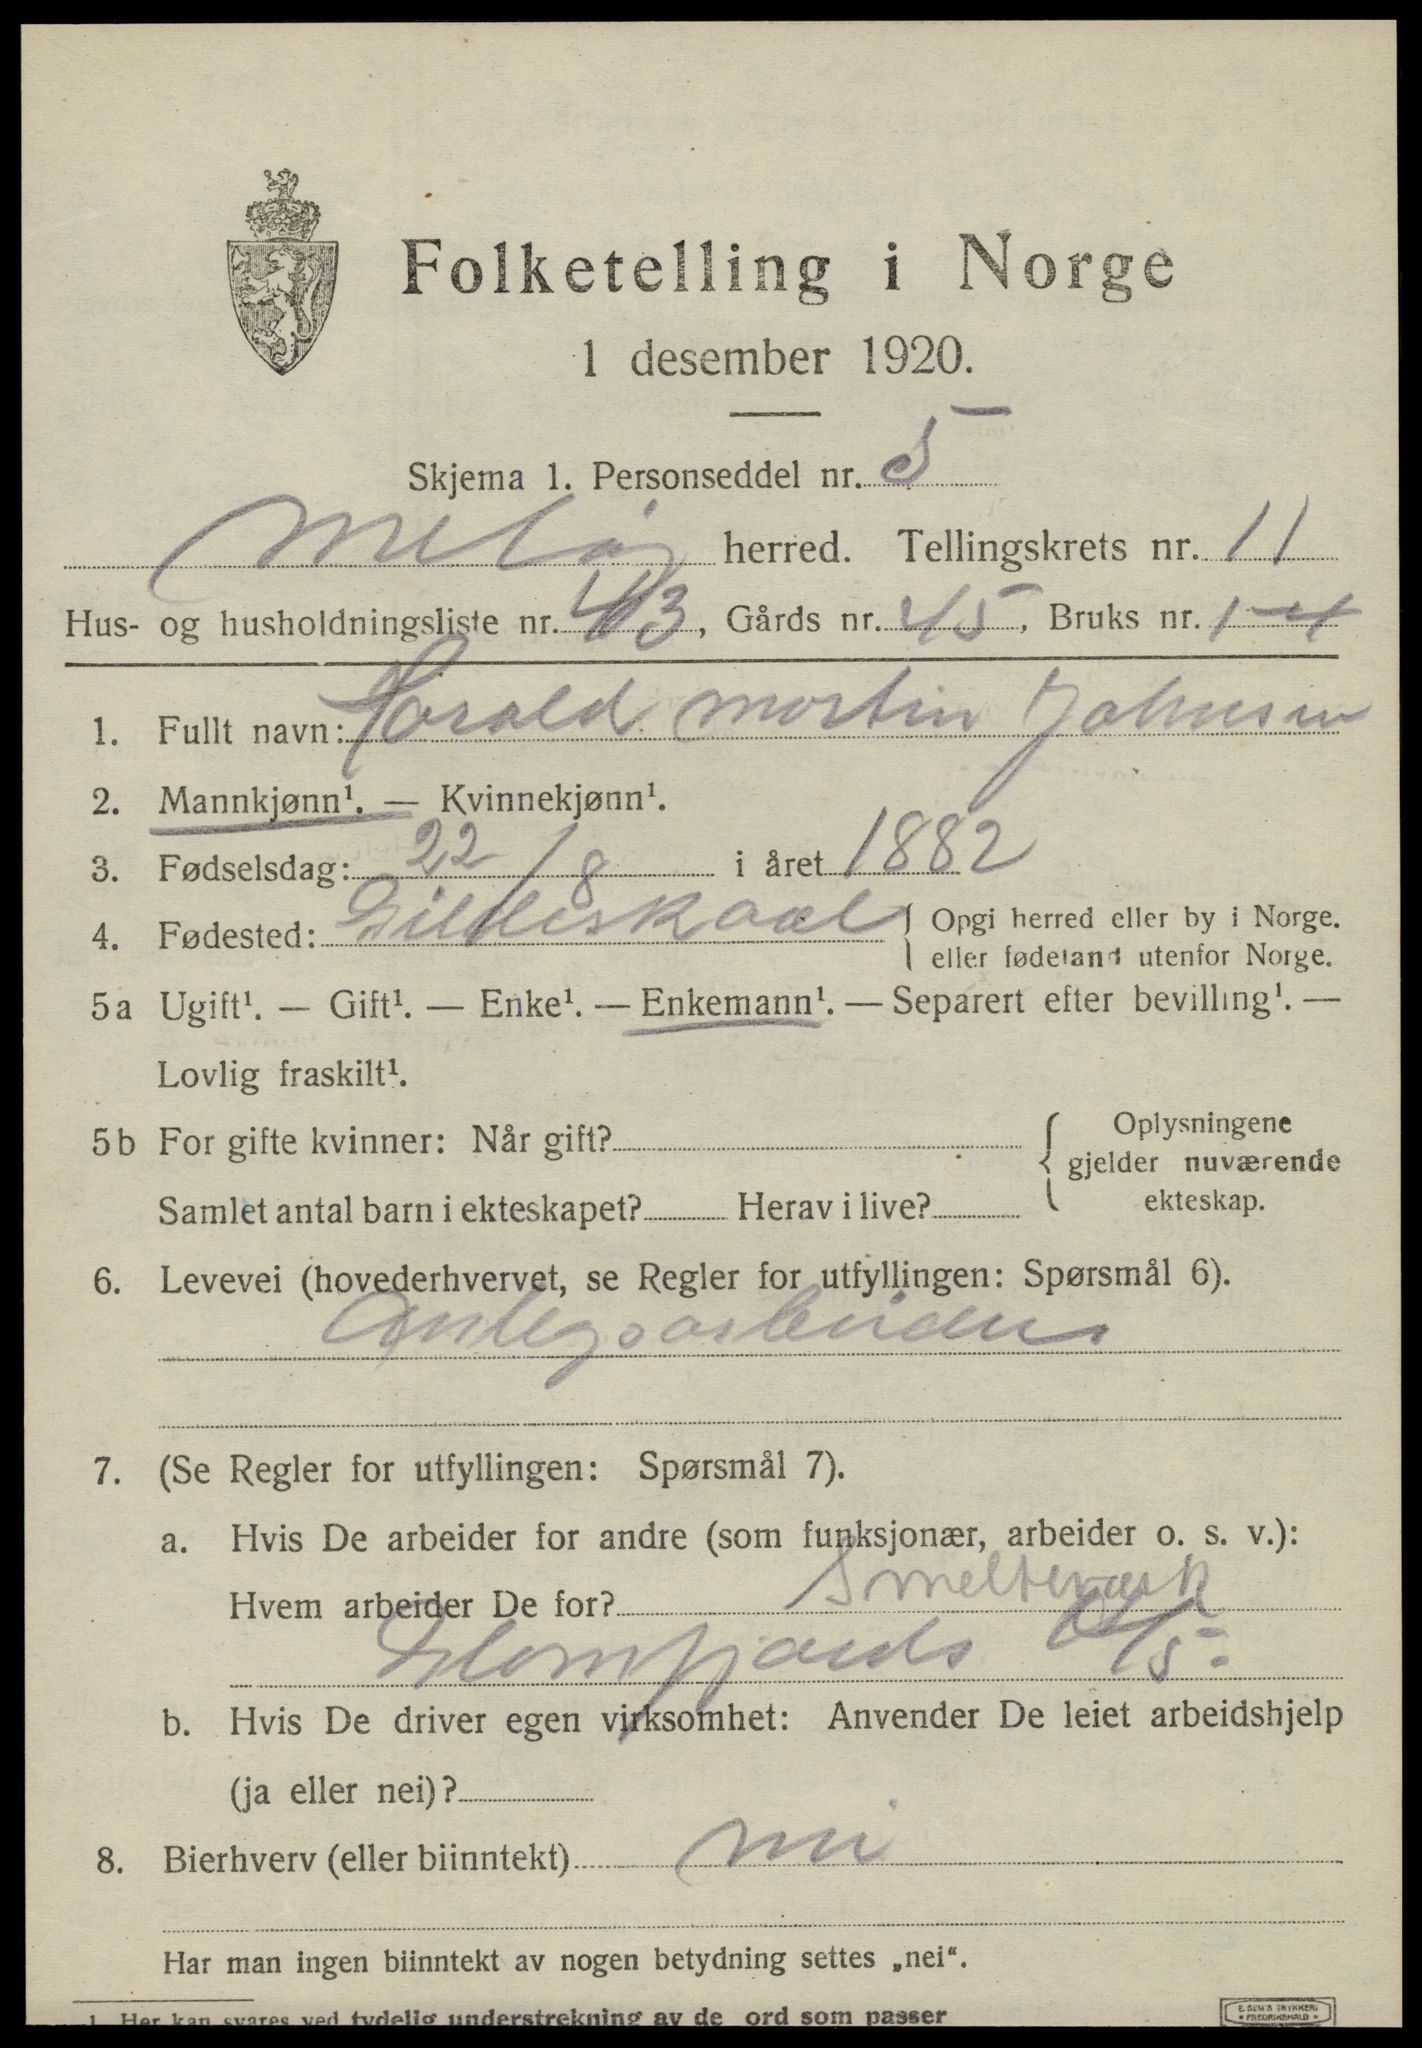 Folketelling i Norge
1 desember 1920.
Skjema 1. Personseddel nr. 5
Meløy herred. Tellingskrets nr. 11
Hus- og husholdningsliste nr. 43, Gårds nr. 45, Bruks nr. 1-4
1. Fullt navn: Harald Martin Johnsen
2. Mannkjønn¹. — Kvinnekjønn¹.
3. Fødselsdag: 22/8 i året 1882
4. Fødested: Gildeskaal { Opgi herred eller by i Norge.
eller fødeland utenfor Norge.
5a Ugift¹. — Gift¹. — Enke¹. — Enkemann¹. — Separert efter bevilling¹. —
Lovlig fraskilt¹.
5b For gifte kvinner: Når gift? { Oplysningene
gjelder nuværende
Samlet antal barn i ekteskapet? Herav i live? ekteskap.
6. Levevei (hovederhvervet, se Regler for utfyllingen: Spørsmål 6).
Anlegsarbeider
7. (Se Regler for utfyllingen: Spørsmål 7).
a. Hvis De arbeider for andre (som funksjonær, arbeider o. s. v.):
Hvem arbeider De for? Smelteværk
Glomfjords A/S
b. Hvis De driver egen virksomhet: Anvender De leiet arbeidshjelp
(ja eller nei)?
8. Bierhverv (eller biinntekt) nei
Har man ingen biinntekt av nogen betydning settes „nei“.
1. Her kan svares ved tydelig understrekning av de ord som passer
E. SEM'S TRYKKERI
FREDRIKSHALD